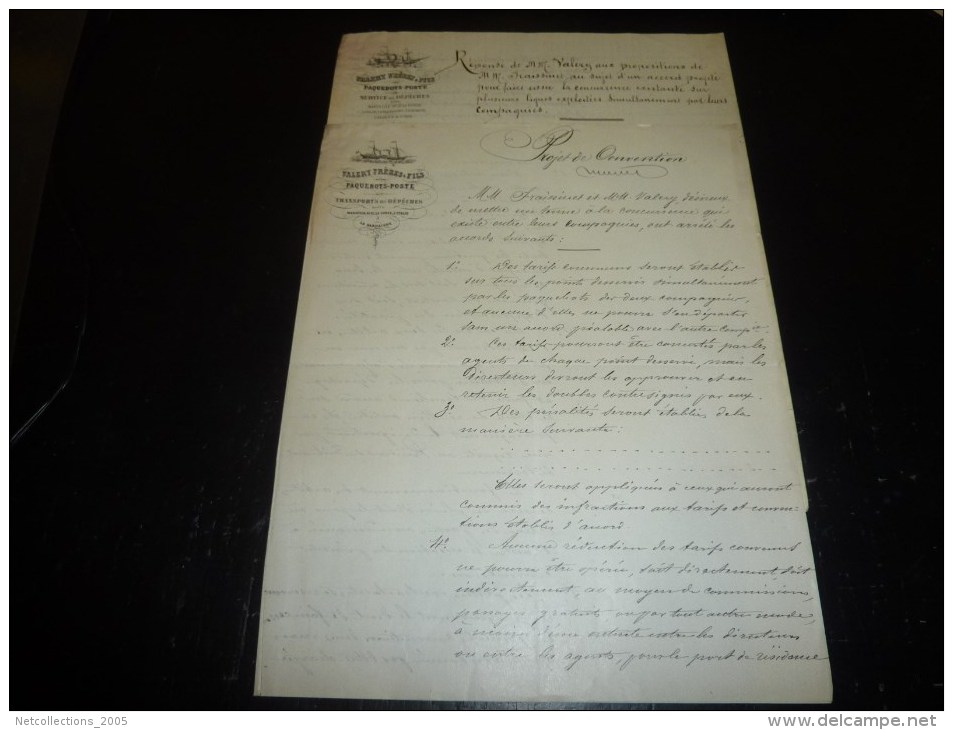 VALERY FRÈRES & FILS
PAQUEBOTS-POSTE
SERVICE DES DÉPÊCHES
Réponse de MM. Valery aux propositions de
MM. Fraissinet, au sujet d'un accord projeté
pour faire cesser la concurrence existante sur
plusieurs lignes exploitées simultanément par leurs
Compagnies.
VALERY FRÈRES & FILS
PAQUEBOTS-POSTE
TRANSPORTS DES DÉPÊCHES
Projet de Convention
MM. Fraissinet et MM. Valery désireux
de mettre un terme à la concurrence qui
existe entre leurs Compagnies, ont arrêté les
accords suivants :
1º. Des tarifs communs seront établis
sur tous les points desservis simultanément
par les paquebots des deux compagnies,
et aucune d'elles ne pourra s'en départir
sans un accord préalable avec l'autre Compie.
2º. Ces tarifs pourront être concertés par les
agents de chaque point desservi, mais les
directeurs devront les approuver et en
retenir les doubles contresignés par eux.
3º. Des pénalités seront établies de la
manière suivante :
Elles seront appliquées à ceux qui auront
commis des infractions aux tarifs et conven-
tions établis d'accord
4º. Aucune réduction des tarifs convenus
ne pourra être opérée, soit directement soit
indirectement, au moyen de commissions,
passages gratuits ou par tout autre mode,
à moins d'une entente entre les directeurs
ou entre les agents, pour le port de résidence
Netcollections_2005
www.delcampe.net